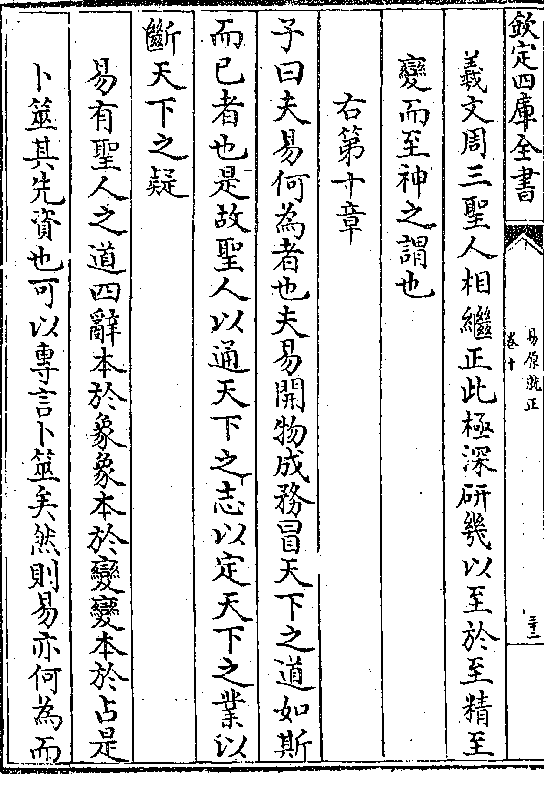 欽定四庫全書
易原就正
卷十
三十二
羲文周三聖人相繼正此極深研幾以至於至精至
變而至神之謂也
右第十章
子曰夫易何為者也夫易開物成務冒天下之道如斯
而已者也是故聖人以通天下之志以定天下之業以
斷天下之疑
易有聖人之道四辭本於象象本於變變本於占是
卜筮其先資也可以專言卜筮矣然則易亦何為而